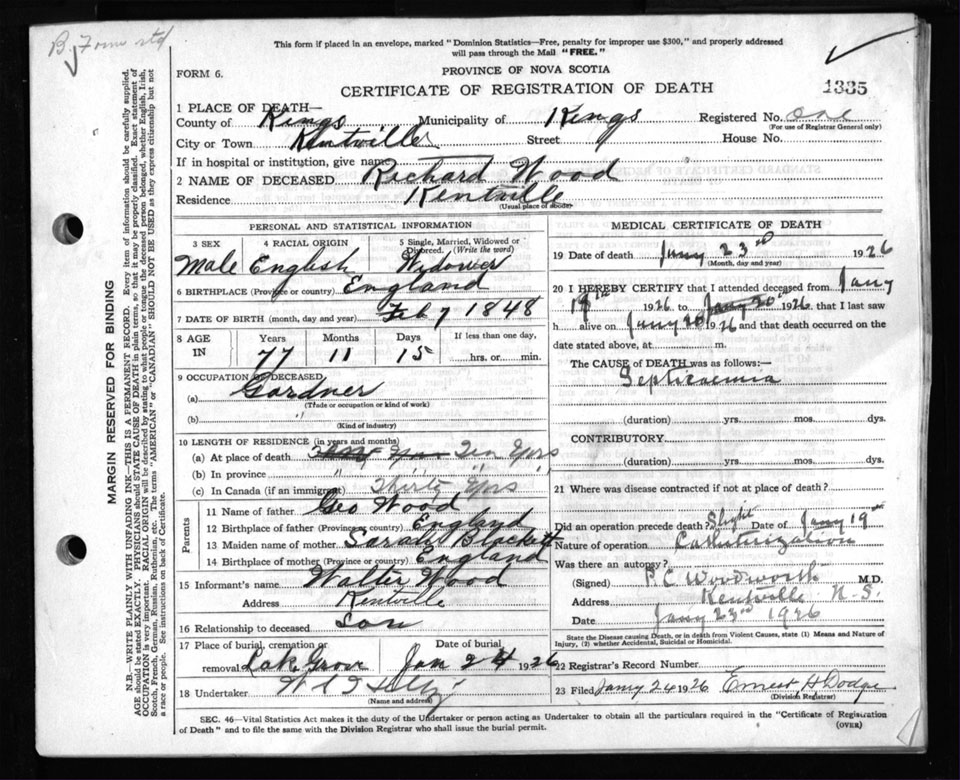 B. Form std
This form if placed in an envelope, marked "Dominion Statistics—Free, penalty for improper use $300," and properly addressed
will pass through the Mail "FREE."
FORM 6.
PROVINCE OF NOVA SCOTIA
CERTIFICATE OF REGISTRATION OF DEATH
1335
1 PLACE OF DEATH—
County of Kings Municipality of Kings Registered No. one
(For use of Registrar General only)
City or Town Kentville Street House No.
If in hospital or institution, give name
2 NAME OF DECEASED Richard Wood
Residence Kentville
(Usual place of abode)
PERSONAL AND STATISTICAL INFORMATION
3 SEX 4 RACIAL ORIGIN 5 Single, Married, Widowed or Divorced. (Write the word)
Male English Widower
6 BIRTHPLACE (Province or country) England
7 DATE OF BIRTH (month, day and year) Feb 7 1848
8 AGE IN Years Months Days If less than one day,
77 11 15 hrs. or min.
9 OCCUPATION OF DECEASED
(a) Gardner
(Trade or occupation or kind of work)
(b) "
(Kind of industry)
10 LENGTH OF RESIDENCE (in years and months)
(a) At place of death Ten Yrs
(b) In province " " "
(c) In Canada (if an immigrant) Thirty Yrs
Parents
11 Name of father Geo Wood
12 Birthplace of father (Province or country) England
13 Maiden name of mother Sarah Blackett
14 Birthplace of mother (Province or country) England
15 Informant's name Walter Wood
Address Kentville
16 Relationship to deceased Son
17 Place of burial, cremation or removal Oak Grove Date of burial Jan 24 1926
18 Undertaker
(Name and address)
MEDICAL CERTIFICATE OF DEATH
19 Date of death Jany 23rd 1926
(Month, day and year)
20 I HEREBY CERTIFY that I attended deceased from Jany
19th 1926 to Jany 20th 1926, that I last saw
h alive on Jany 20 1926 and that death occurred on the
date stated above, at m.
The CAUSE of DEATH was as follows:—
Septicaemia
(duration) yrs. mos. dys.
CONTRIBUTORY
(duration) yrs. mos. dys.
21 Where was disease contracted if not at place of death?
Did an operation precede death? Slight Date of Jany 19th
Nature of operation Catheterization
Was there an autopsy?
(Signed) P.C. Woodworth M.D.
Address Kentville N.S.
Date Jany 23rd 1926
State the Disease causing Death, or in death from Violent Causes, state (1) Means and Nature of
Injury, (2) whether Accidental, Suicidal or Homicidal.
22 Registrar's Record Number
23 Filed Jany 24 1926 Ernest H Dodge
(Division Registrar)
SEC. 46—Vital Statistics Act makes it the duty of the Undertaker or person acting as Undertaker to obtain all the particulars required in the "Certificate of Registration
of Death" and to file the same with the Division Registrar who shall issue the burial permit.
(OVER)
MARGIN RESERVED FOR BINDING
N.B.—WRITE PLAINLY WITH UNFADING INK—THIS IS A PERMANENT RECORD. Every item of information should be carefully supplied.
AGE should be stated EXACTLY. PHYSICIANS should STATE CAUSE OF DEATH in plain terms, so that it may be properly classified. Exact statement of
OCCUPATION is very important. RACIAL ORIGIN will be described by stating to what people or tongue the deceased person belonged, whether English, Irish,
Scotch, French, German, Russian, Ruthenian, etc. The terms "AMERICAN" or "CANADIAN" SHOULD NOT BE USED as they express citizenship but not
a race or people. See instructions on back of Certificate.